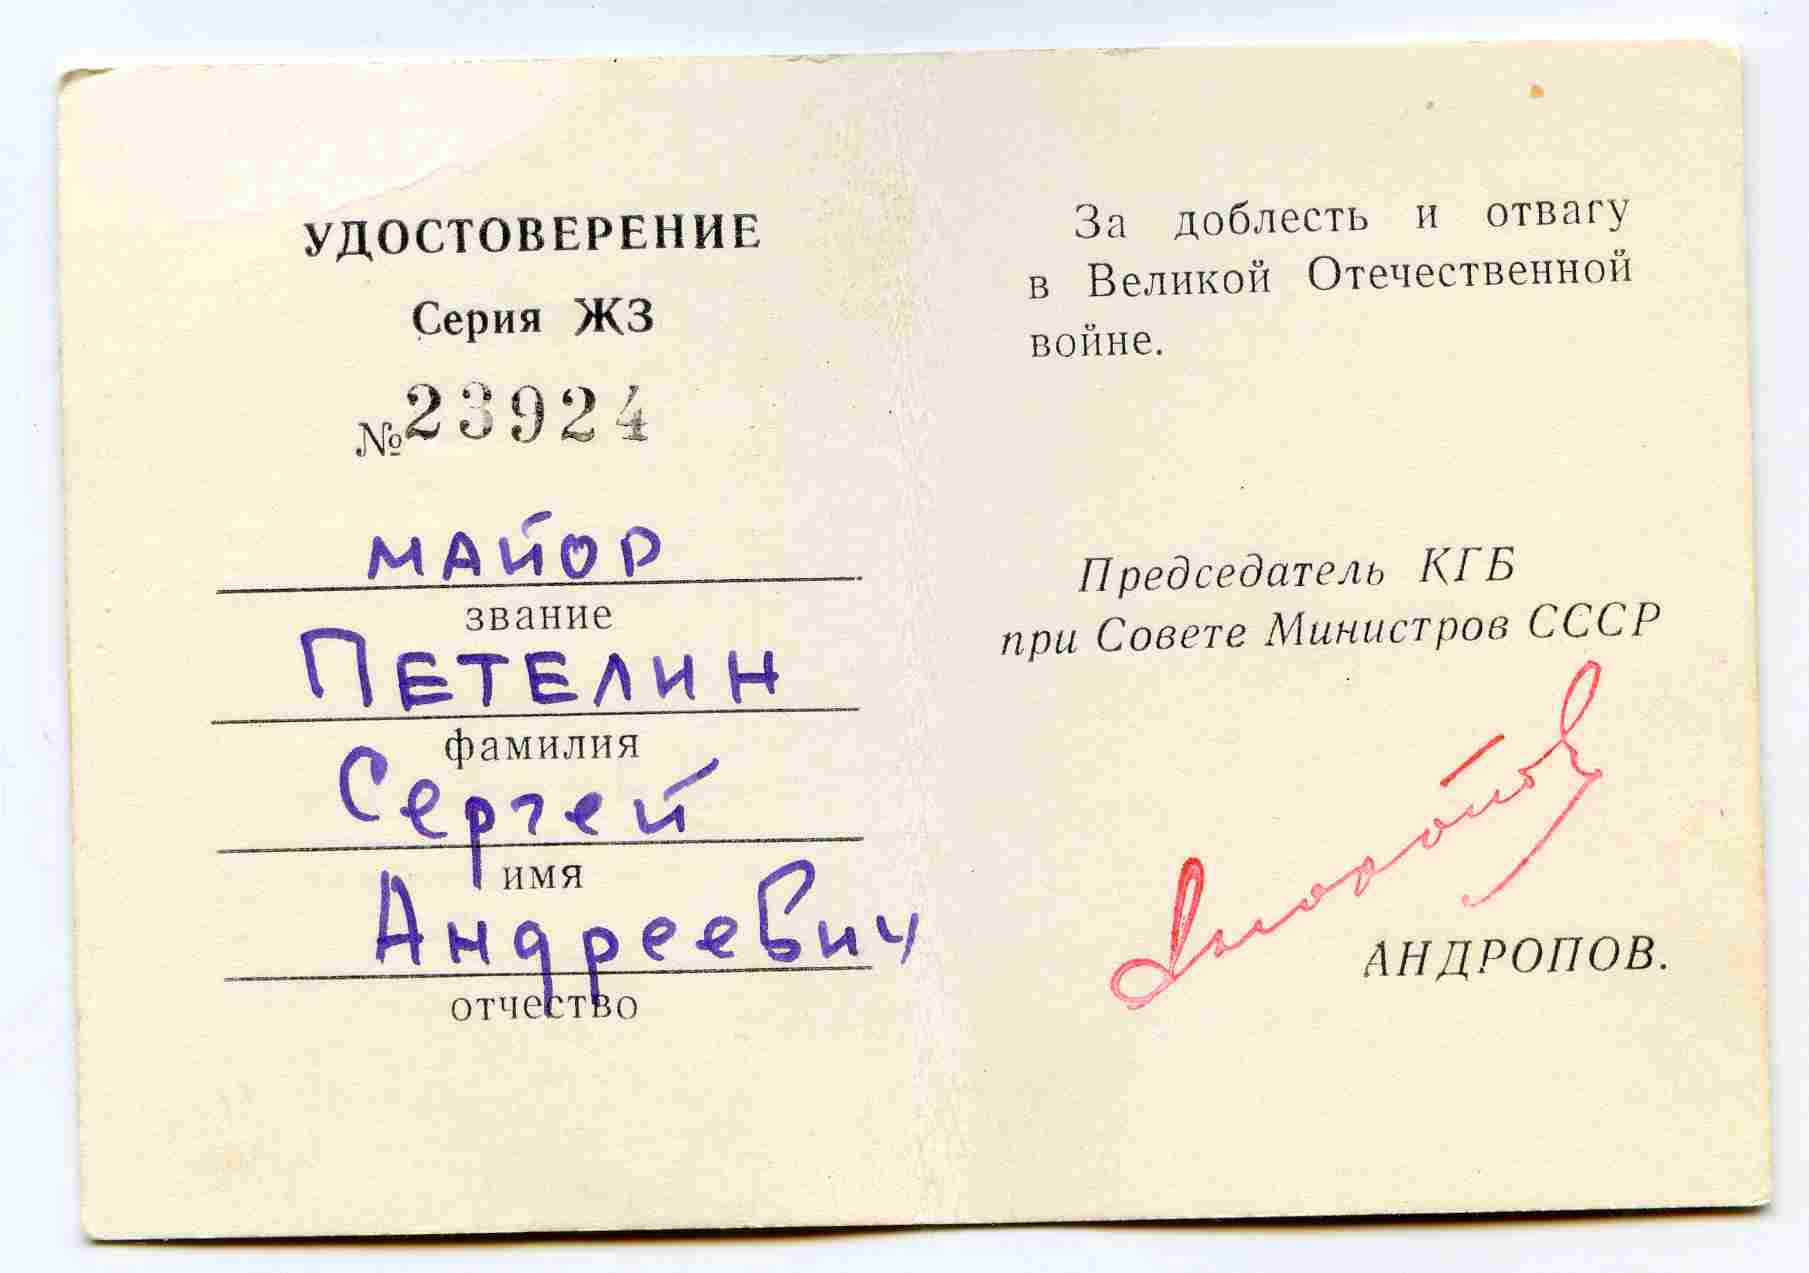 УДОСТОВЕРЕНИЕ
Серия ЖЗ
№ 23924
майор
звание
Петелин
фамилия
Сергей
имя
Андреевич
отчество
За доблесть и отвагу
в Великой Отечественной
войне.
Председатель КГБ
при Совете Министров СССР
Андропов
АНДРОПОВ.